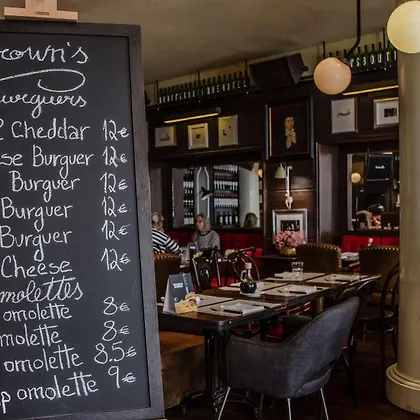 rown's
urguers
Cheddar 12€
se Burguer 12€
Burguer 12€
Burguer 12€
Burguer 12€
Cheese 12€
omolettes
omolette 8€
molette 8€
omolette 8.5€
p omolette 9€